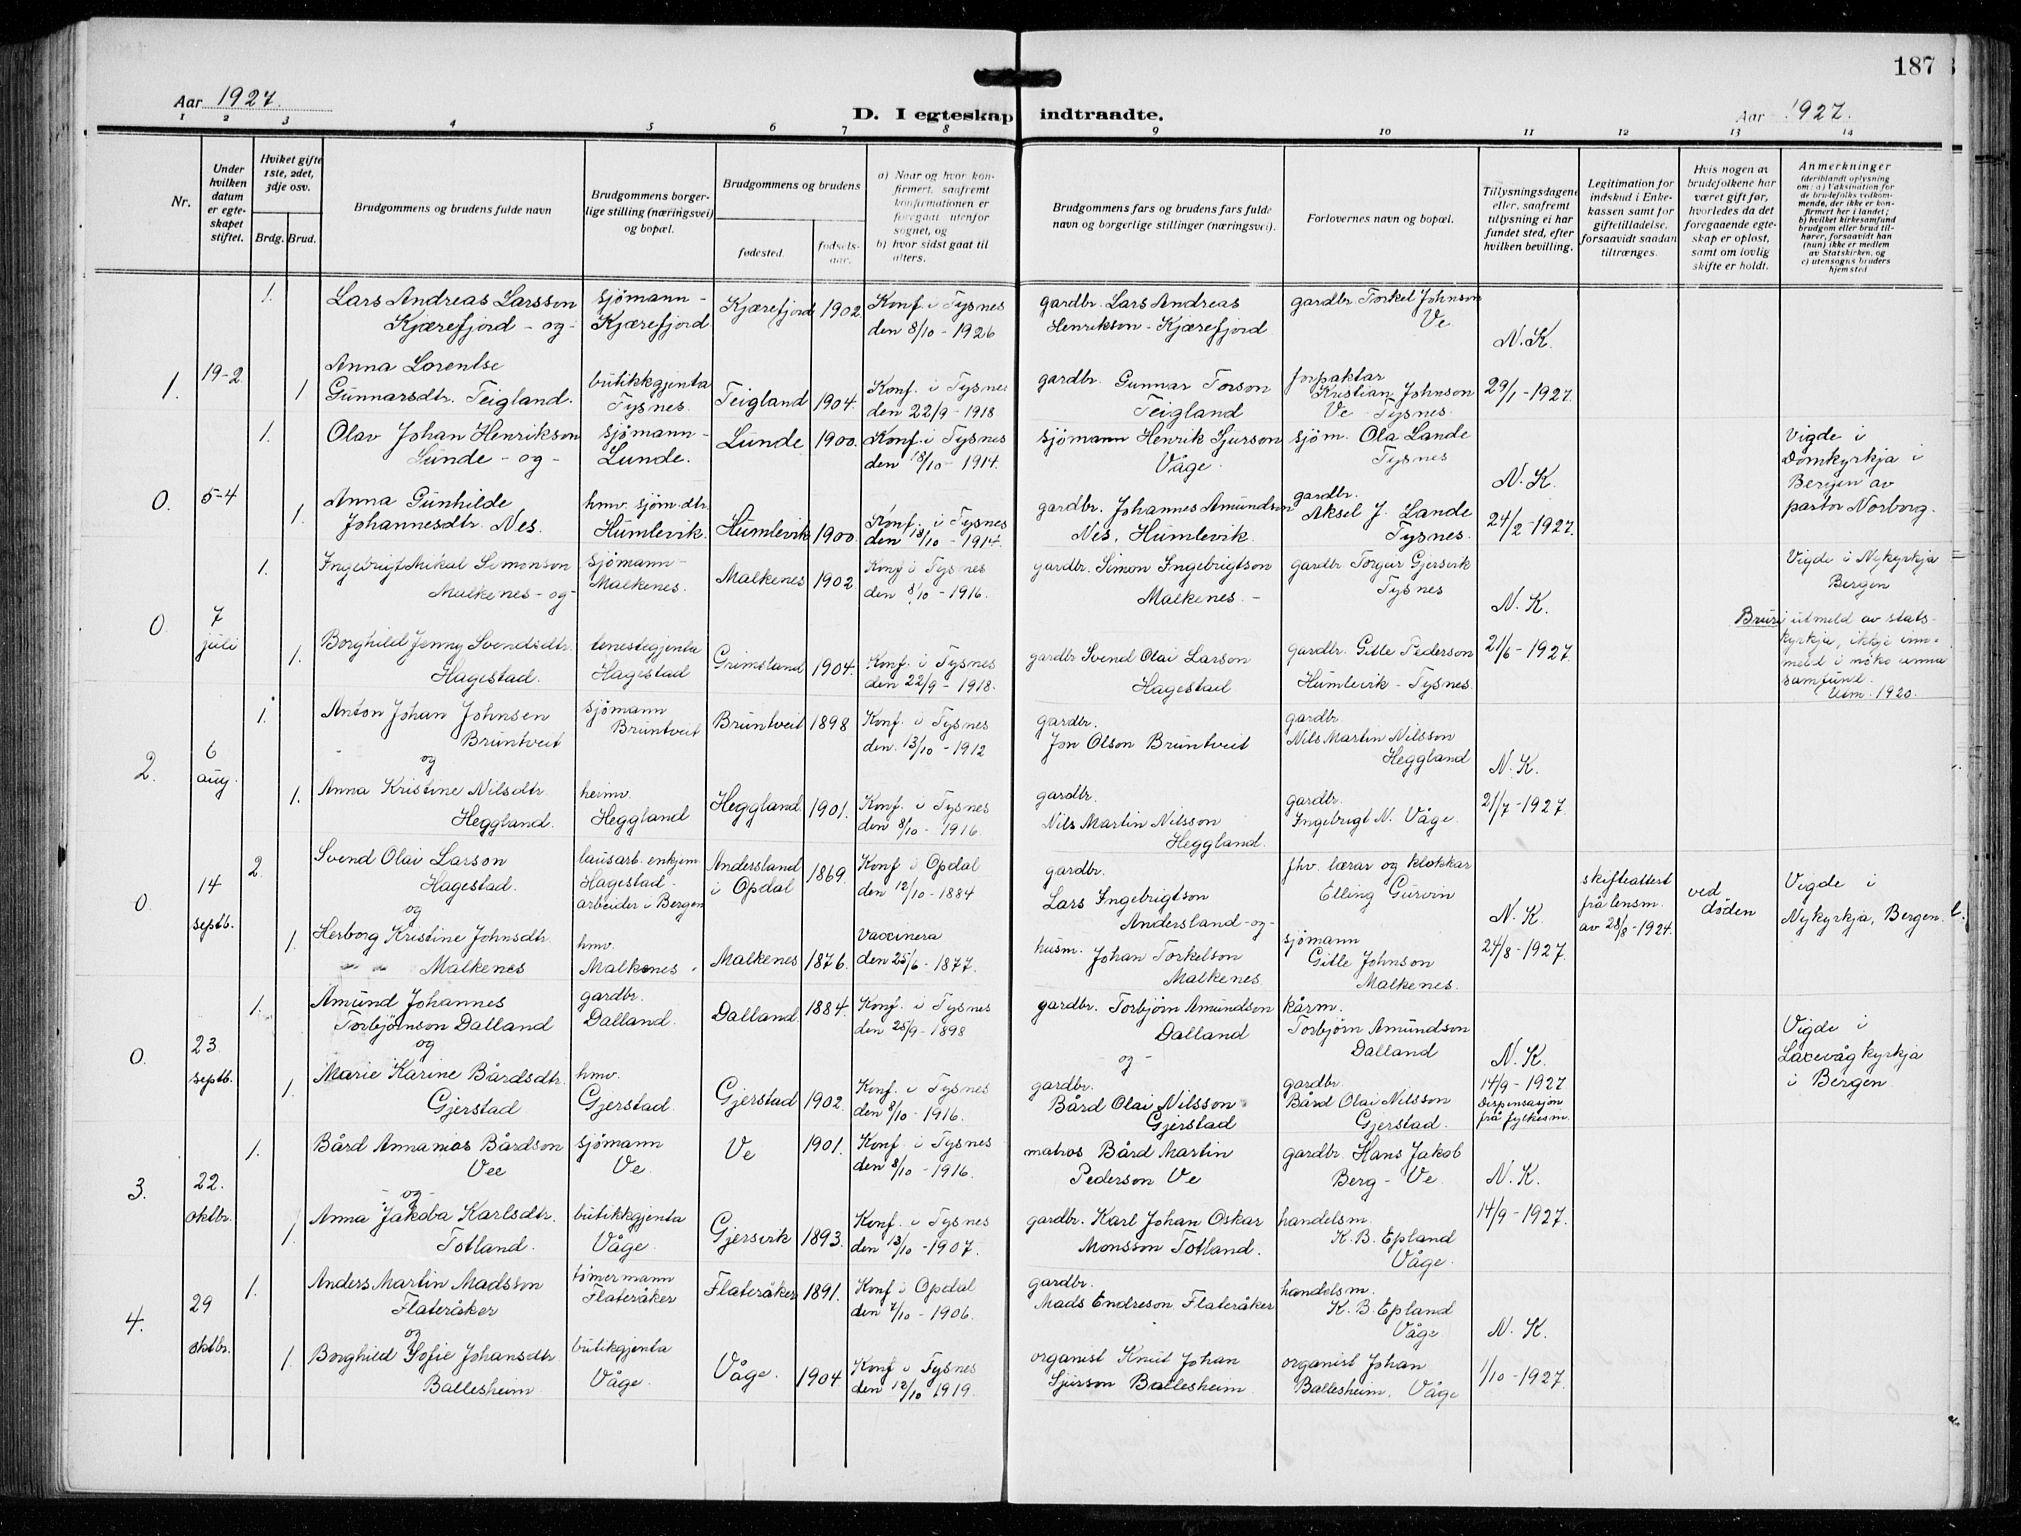 187
Aar 1927.
D. I egteskap indtraadte.
Aar 1927.
1 2 3 4 5 6 7 8 9 10 11 12 13 14
Nr.
Under hvilken datum er egteskapet stiftet.
Hviket gifte 1ste, 2det, 3dje osv.
Brdg. Brud.
Brudgommens og brudens fulde navn
Brudgommens borgerlige stilling (næringsvei) og bopæl.
Brudgommens og brudens
fødested.
fødselsaar.
a) Naar og hvor konfirmert, saafremt konfirmationen er foregaat utenfor sognet, og
b) hvor sidst gaat til alters.
Brudgommens fars og brudens fars fulde navn og borgerlige stillinger (næringsvei).
Forlovernes navn og bopæl.
Tillysningsdagene eller, saafremt tillysning ei har fundet sted, efter hvilken bevilling.
Legitimation for indskud i Enkekassen samt for giftetilladelse, forsaavidt saadan tiltrænges.
Hvis nogen av brudefolkene har været gift før, hvorledes da det foregaaende egteskap er opløst, samt om lovlig skifte er holdt.
Anmerkninger
(deriblandt oplysning om: a) Vaksination for de brudefolks vedkommende, der ikke er konfirmert her i landet;
b) hvilket kirkesamfund brudgom eller brud tilhører, forsaavidt han (hun) ikke er medlem av Statskirken, og
c) utensogns bruders hjemsted
1. 19-2
1. Lars Andreas Larsson Kjærefjord - og -
sjömann - Kjærefjord
Kjærefjord 1902
Konf. i Tysnes den 8/10 - 1926
gardbr. Lars Andreas Henrikson - Kjærefjord
gardbr. Torkel Johnson Ve
N. K.
1 Anna Lorentse Gunnarsdtr. Teigland.
butikkgjenta Tysnes.
Teigland 1904.
Konf. i Tysnes den 22/9 - 1918
gardbr. Gunnar Torson Teigland
forpaktar Kristian Johnson Ve Tysnes.
29/1 - 1927.
0. 5-4
1. Olav Johan Henrikson Lunde - og -
sjömann - Lunde.
Lunde 1900.
Konf. i Tysnes den 18/10 - 1914.
sjömann Henrik Sjurson Våge.
sjöm. Ola Lande Tysnes
N. K.
Vigde i Domkyrkja i Bergen av pastor Norborg.
1. Anna Gunhilde Johannesdtr. Nes.
hmv. sjöm. dtr. Humlevik.
Humlevik 1900.
Konf. i Tysnes den 18/10 - 1914.
gardbr. Johannes Amundson Nes, Humlevik.
gardbr. Aksel J. Lande Tysnes.
24/2 - 1927.
0. 7 juli
1. Ingebrigt Mikal Simonson Malkenes - og -
sjömann - Malkenes.
Malkenes 1902
Konf i Tysnes den 8/10 - 1916.
gardbr. Simon Ingebrigtson Malkenes. -
gardbr Torgeir Gjersvik Tysnes
N. K.
Vigde i Nykyrkja Bergen
1. Borghild Jenny Svendsdtr. Hagestad.
tenestegjenta Hagestad
Grimsland 1904.
Konf. i Tysnes den 22/9 - 1918.
gardbr Svend Olai Larson Hagestad
gardbr. Gitle Pederson Humlevik - Tysnes.
21/6 - 1927.
Bruri utmeld av statskyrkja, ikkje innmeld i nöko anna samfund. Utm. 1920.
2. 6 aug.
1. Anton Johan Johnsen Bruntveit og
sjömann Bruntveit
Bruntveit 1898
Konf. i Tysnes den. 13/10 - 1912
gardbr. Jon Olson Bruntveit
gardbr. Nils Martin Nilsson Heggland
N. K.
1. Anna Kristine Nilsdtr. Heggland.
heimv. Heggland
Heggland 1901.
Konf. i Tysnes den 8/10 - 1916.
gardbr. Nils Martin Nilsson Heggland.
gardbr. Ingebrigt N. Våge.
21/7 - 1927.
0. 14 septb.
2. Svend Olai Larson Hagestad. og
lausarb. enkjem. Hagestad. arbeider i Bergen
Andersland i Opdal 1869.
Konf i Opdal den 12/10 - 1884
gardbr. Lars Ingebrigtson Andersland - og -
fhv. lærar og klokkar Elling Gurvin
N. K
skifteattest frå lensm. av 28/8 - 1924.
ved döden
Vigde i Nykyrkja, Bergen.
1. Herborg Kristine Johnsdtr. Malkenes
hmv. Malkenes.
Malkenes 1876.
vaccinera den 25/6 - 1877.
husm. Johan Torkelson Malkenes.
sjömann Gitle Johnson Malkenes.
24/8 - 1927.
0. 23 septb.
1. Amund Johannes Torbjörnson Dalland og
gardbr. Dalland.
Dalland 1884.
Konf. i Tysnes den 25/9 - 1898
gardbr. Torbjörn Amundson Dalland og -
kårm. Torbjörn Amundson Dalland
N. K.
Vigde i Laxevåg kyrkja i Bergen.
1. Marie Karine Bårdsdtr. Gjerstad
hmv. Gjerstad.
Gjerstad 1902.
Konf. i Tysnes den 8/10 - 1916.
gardbr. Bård Olai Nilsson Gjerstad
gardbr. Bård Olai Nilsson Gjerstad.
14/9 - 1927 Dispensasjon frå fylkesm.
3. 22. oktbr.
1. Bård Annanias Bårdson Vee - og -
sjömann Ve.
Ve 1901.
Konf. i Tysnes den 8/10 - 1916.
matros Bård Martin Pederson Ve
gardbr. Hans Jakob Berg - Ve.
N. K.
1. Anna Jakoba Karlsdtr. Totland.
butikkgjenta Våge.
Gjersvik 1893.
Konf. i Tysnes den 13/10 - 1907.
gardbr. Karl Johan Oskar Monsson Totland.
handelsm. K. B. Epland Våge.
14/9 - 1927.
4. 29 oktbr.
1. Anders Martin Madsson Flateråker og
tömermann Flateråker
Flateråker 1891.
Konf i Opdal den 7/10 - 1906.
gardbr. Mads Endreson Flateråker
handelsm. K. B. Epland Våge
N. K.
1. Borghild Sofie Johansdtr. Ballesheim
butikgjenta Våge.
Våge. 1904.
Konf i Tysnes den 12/10 1919.
organist Knut Johan Sjurson Ballesheim
organist Johan Ballesheim, Våge
1/10 - 1927.